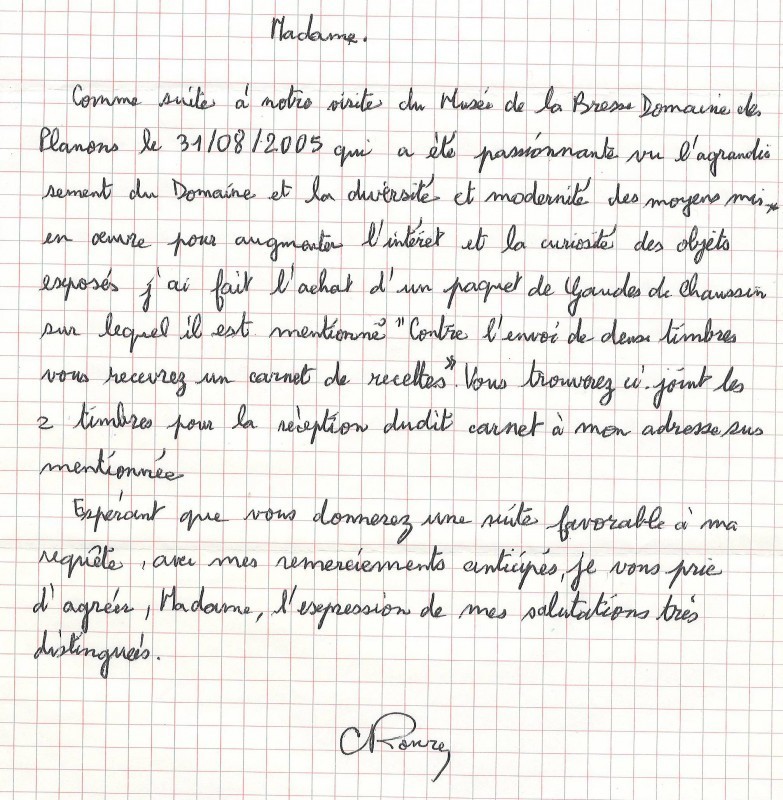 Madame.
Comme suite à notre visite du Musée de la Bresse Domaine des
Planons le 31/08/2005 qui a été passionnante vu l'agrandis
sement du Domaine et la diversité et modernité des moyens mis
en œuvre pour augmenter l'intéret et la curiosité des objets
exposés j'ai fait l'achat d'un paquet de Gaudes de Chaussin
sur lequel il est mentionné "Contre l'envoi de deux timbres
vous recevrez un carnet de recettes". Vous trouverez ci-joint les
2 timbres pour la réception dudit carnet à mon adresse sus
mentionnée
Espérant que vous donnerez une suite favorable à ma
requête, avec mes remerciements anticipés, je vous prie
d'agréer, Madame, l'expression de mes salutations très
distinguées.